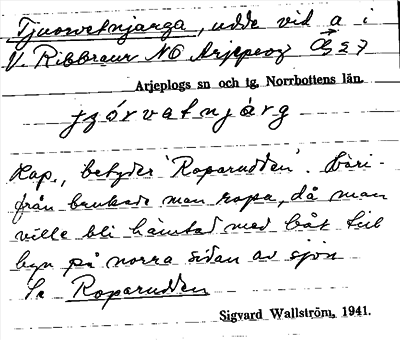 Tjuorvetnjarga, udde vid a i
V. Ribbraur NO Arjeplog 27
Arjeplogs sn och tg, Norrbottens län.
Lap., betyder 'Roparudden'. Där-
ifrån brukade man ropa, då man
ville bli hämtad med båt till
byn på norra sidan av sjön
Se Roparudden
Sigvard Wallström, 1941.